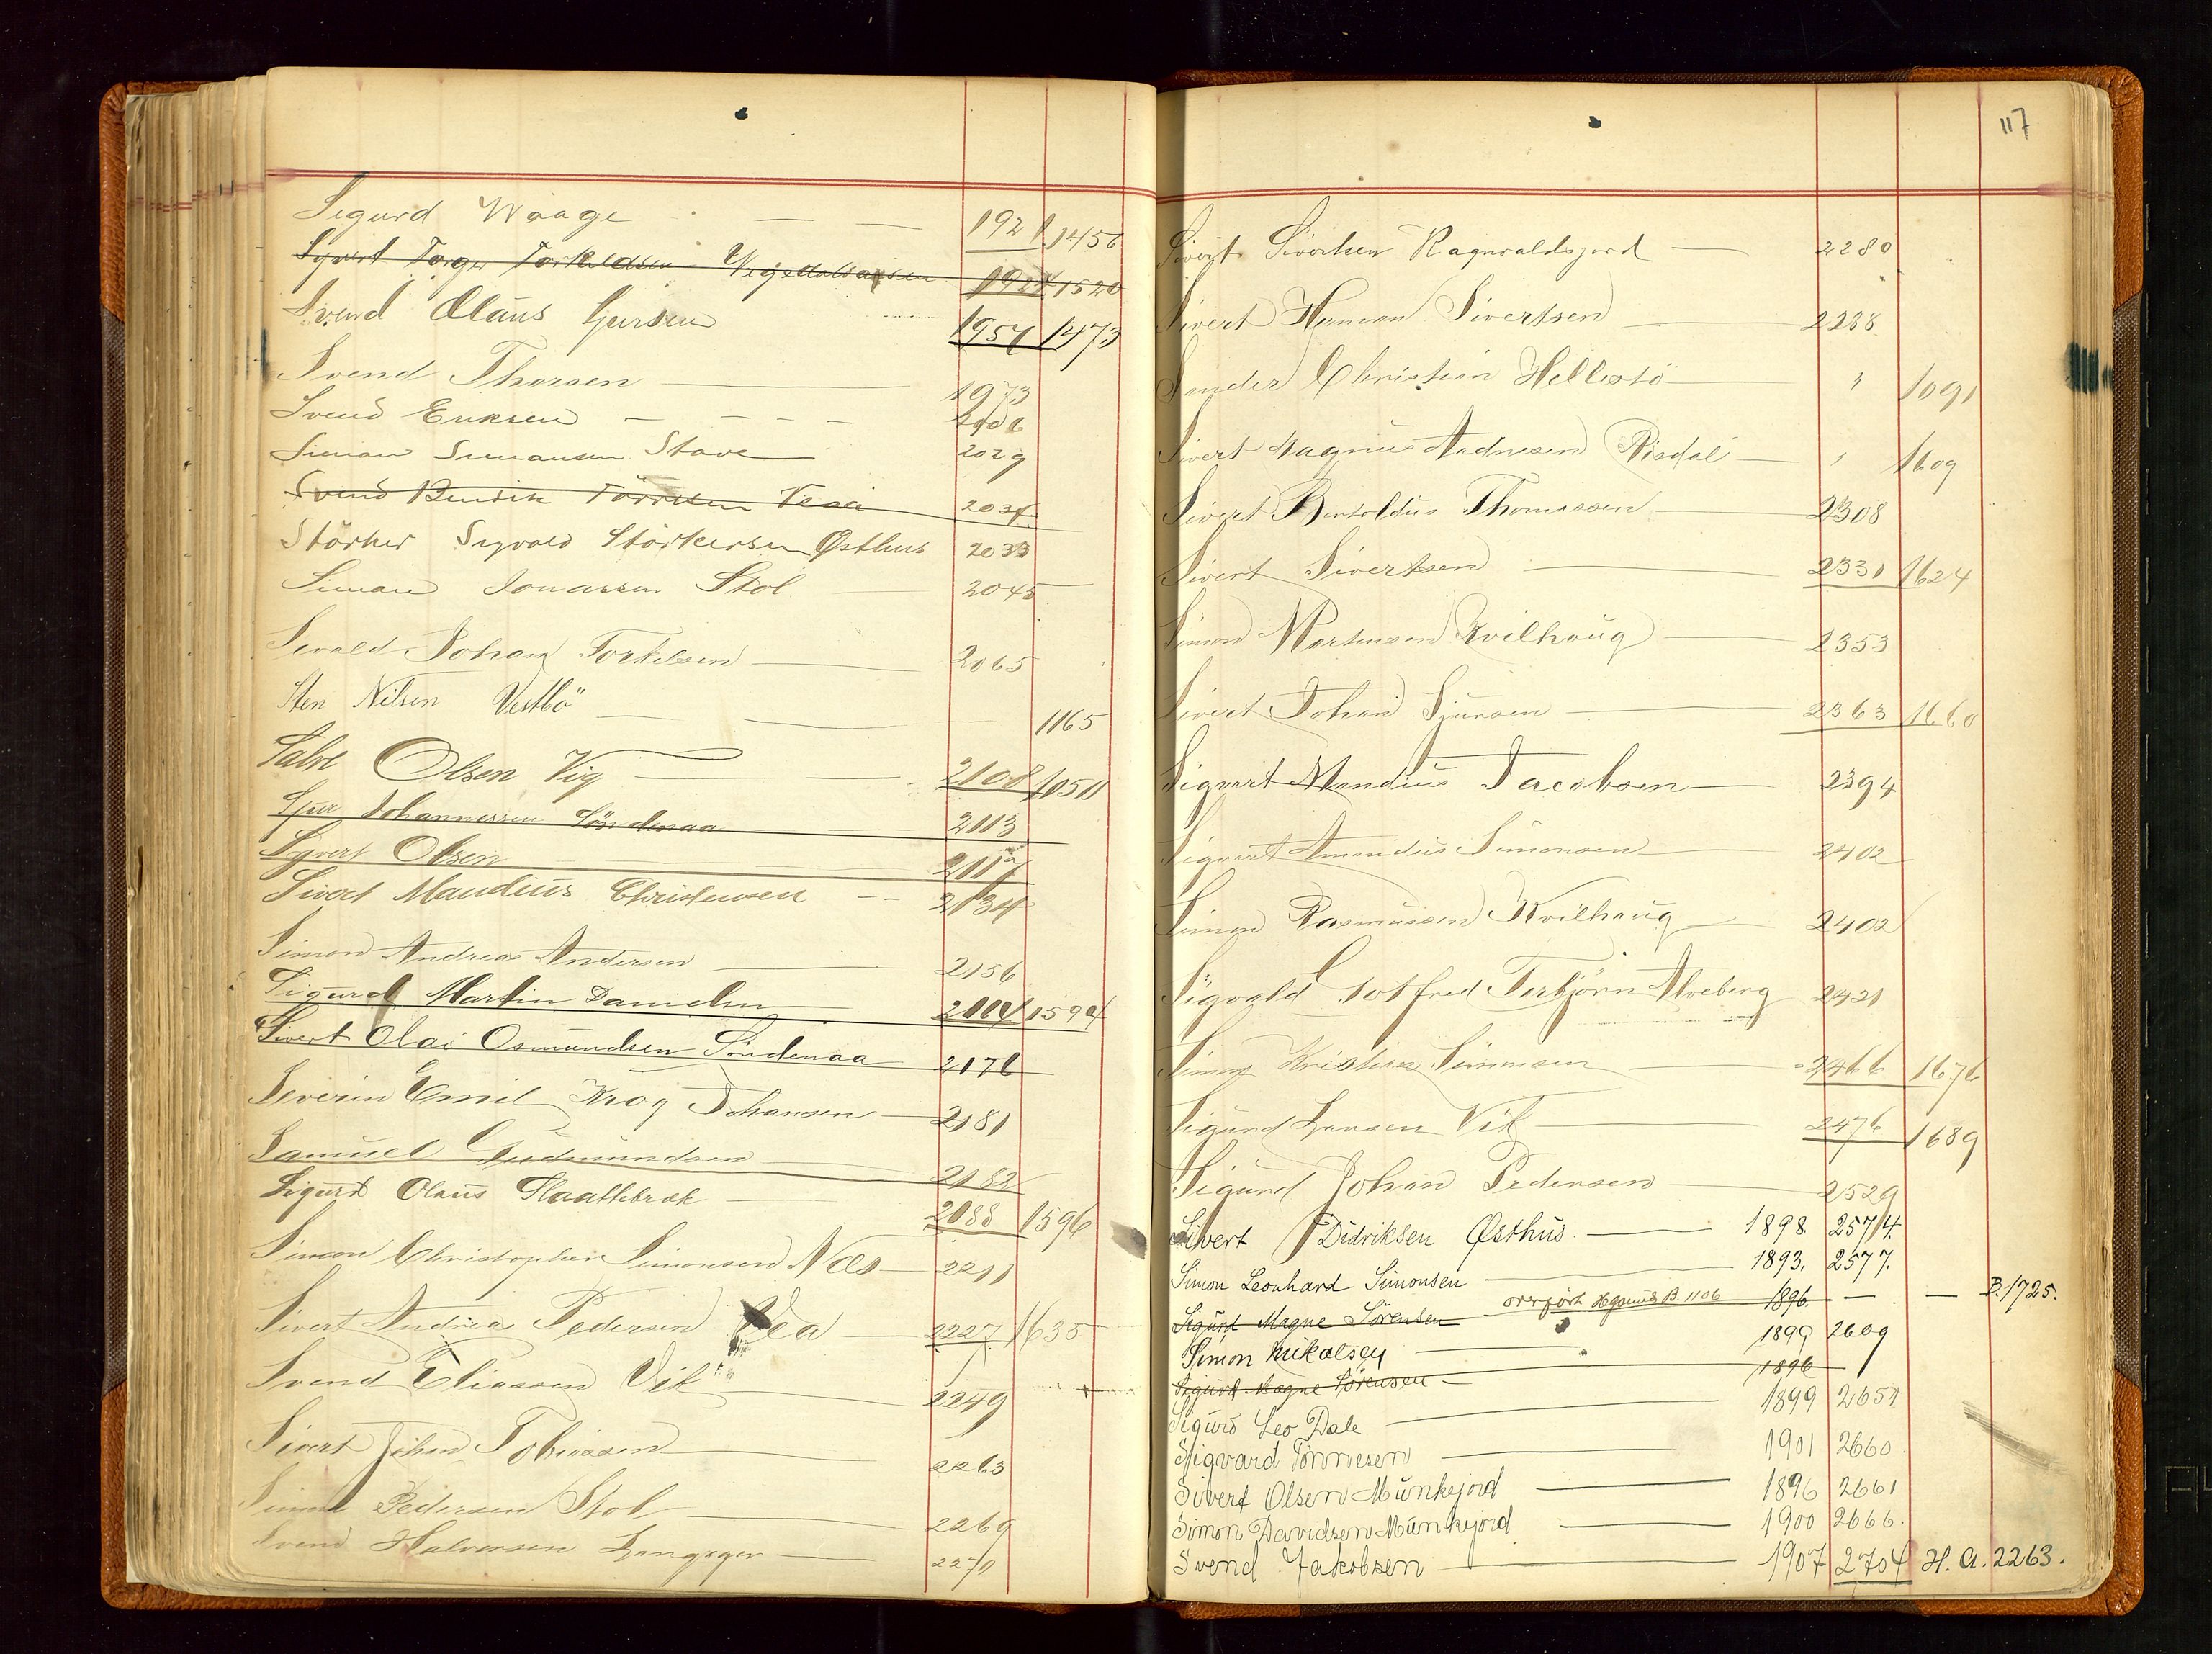 Sigurd Waage — — 1921 1456
Syvert Torger Torkildsen 1924 1520
Svend Olaus Gursen 1957 1473
Svend Thorsen — 1973
Svend Eriksen — — — — 2006
Simon Simonsen Stave — 2029
Svend Bendik Törresen Veaa 2034
Störker Sigvald Störkersen Østhus 2033
Simon Jonassen Stol — 2045
Sevald Johan Torkelsen — 2065
Sten Nilsen Vestbö — — — 1165
Salve Olsen Vig — — 2108 1050
Sjur Johannessen Söndenaa — — 2113
Syvert Olsen 2117
Sivert Mandius Christensen — — 2134
Simon Andreas Andersen — 2156
Sigurd Martin Danielsen 1594
Sivert Olai Osmundsen Söndenaa 2176
Severin Emil Krog Johansen — 2181
Samuel Gudmundsen — 2182
Sigurd Olaus Slaattebrek — 2188 1596
Simon Christopher Simonsen Næs — 2211
Sivert Andreas Pedersen Vea 2227 1635
Svend Eliassen Vik — 2249
Sivert Johan Tobiassen — 2263
Simon Pedersen Stol — 2269
Svend Halvorsen Langager — 2270
117
Sivert Sivertsen Ragnvaldsjord — 2280
Sivert Herman Sivertsen — 2238
Sander Christian Hellestö — " 1091
Sivert Magnus Andresen Risdal — " 1609
Sivert Bertoldus Thomassen — 2308
Sivert Sivertsen — 2330 1624
Simon Mortensen Kvilhaug — 2353
Sivert Johan Sjursen — 2363 1660
Sigvart Mandius Jacobsen — 2394
Sigvart Amandus Simonsen — 2402
Simon Rasmussen Kvilhaug — 2402
Sigvald Gotfred Terbjörn Alveberg 2421
Simon Kristian Simonsen — 2466 1676
Sigurd Larsen Vik — 2476 1689
Sigurd Johan Pedersen — 2529
Sivert Didriksen Østhus. — 1898. 2574.
Simon Leonhard Simonsen — 1893. 2577.
Sigurd Magne Sörensen — overfört Hgsunds B 1106 1896. — — B.1725.
Simon Mikalsen — 1899 2609
Sigurd Magne Sörensen — 1896
Sigurd Leo Dale — 1899 2651
Sigvard Tönnesen — 1901 2660
Sivert Olsen Munkejord — 1896 2661
Simon Davidsen Munkejord — 1900 2666.
Svend Jakobsen — 1907 2704 H. A. 2263.